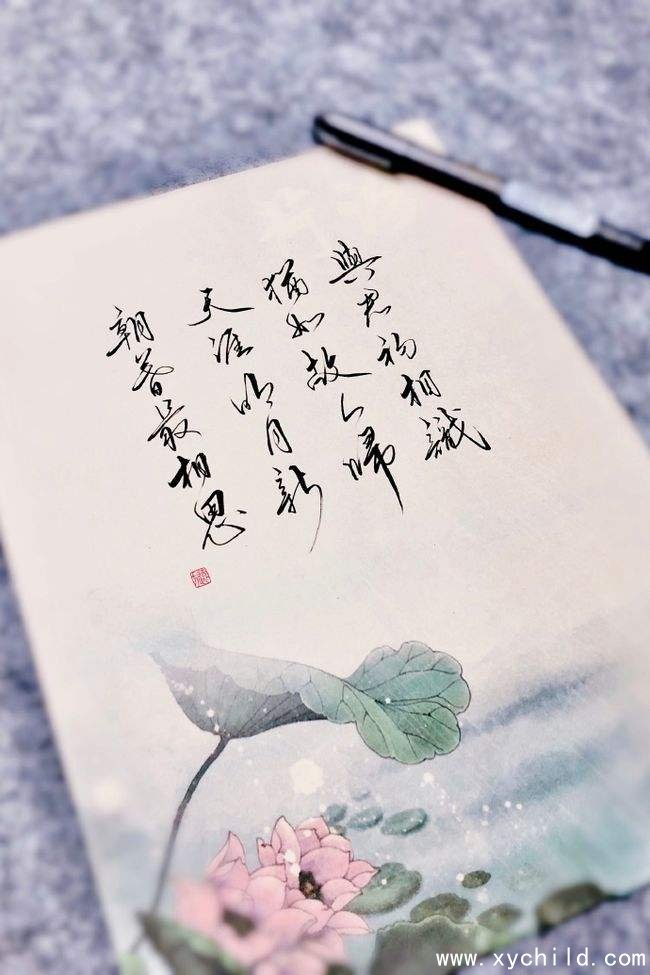 與君初相識
猶如故人歸
天涯明月新
朝暮最相思
www.xychild.com